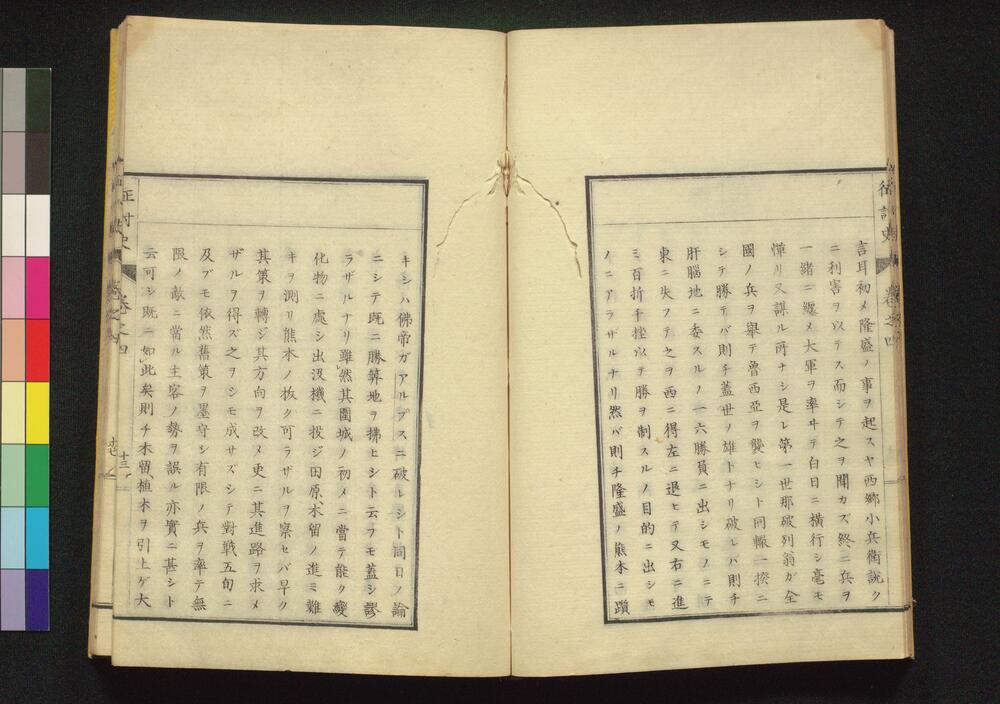 言耳初メ隆盛ノ事ヲ起スヤ西郷小兵衛説ク
ニ利害ヲ以テス而シテ之ヲ聞カズ終ニ兵ヲ
一緒ニ纏メ大軍ヲ率ヰテ白日ニ横行シ毫モ
憚リ又謀ル所ナシ是レ第一世那破列翁ガ全
國ノ兵ヲ舉テ魯西亞ヲ襲ヒシト同轍一揆ニ
シテ勝テバ則チ蓋世ノ雄トナリ破レバ則チ
肝腦地ニ委スルノ一六勝負ニ出シモノニテ
東ニ失フテ之ヲ西ニ得左ニ退ヒテ又右ニ進
ミ百折千挫以テ勝ヲ制スルノ目的ニ出シモ
ノニアラザルナリ然バ則チ隆盛ノ熊本ニ躓
キシハ佛帝ガアルプスニ破レシト同日ノ論
ニシテ既ニ勝算地ヲ拂ヒシト云フモ蓋シ謬
ラザルナリ雖然其圍城ノ初メニ當テ能ク變
化物ニ處シ出沒機ニ投ジ田原、木留ノ進ミ難
キヲ測リ熊本ノ拔ク可ラザルヲ察セバ早ク
其策ヲ轉ジ其方向ヲ改メ更ニ其進路ヲ求メ
ザルヲ得ズ之ヲシモ成サズシテ對戰五旬ニ
及ブモ依然舊策ヲ墨守シ有限ノ兵ヲ率テ無
限ノ敵ニ當ル主客ノ勢ヲ誤ル亦實ニ甚シト
云可シ既ニ如此矣則チ木留植木ヲ引上ゲ大
征討史
卷之四
十三